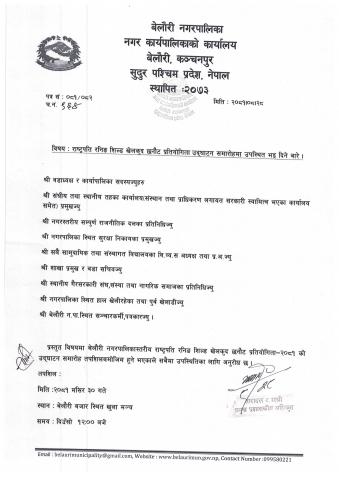 बेलौरी नगरपालिका
नगर कार्यपालिकाको कार्यालय
बेलौरी, कञ्चनपुर
सुदुर पश्चिम प्रदेश, नेपाल
स्थापित :२०७३
पत्र सं : ०८१/०८२
च.नं.
मिति : २०८१/०८/२८
विषय : राष्ट्रपति रनिङ शिल्ड खेलकुद छनौट प्रतियोगिता उद्घाटन समारोहमा उपस्थित भइ दिने बारे ।
श्री वडाध्यक्ष र कार्यपालिका सदस्यज्यूहरु
श्री संघीय तथा स्थानीय तहका कार्यालय(संस्थान तथा प्राधिकरण लगायत सरकारी स्वामित्व भएका कार्यालय
समेत) प्रमुखज्यु
श्री नगरस्तरीय सम्पूर्ण राजनीतिक दलका प्रतिनिधिज्यु
श्री नगरपालिका स्थित सुरक्षा निकायका प्रमुखज्यु
श्री सबै सामुदायिक तथा संस्थागत विद्यालयका वि.व्य.स अध्यक्ष तथा प्र.अ.ज्यु
श्री शाखा प्रमुख र वडा सचिवज्यु
श्री स्थानीय गैरसरकारी संघ,संस्था तथा नागरिक समाजका प्रतिनिधिज्यु
श्री नगरपालिका स्थित हाल खेलीरहेका तथा पुर्व खेलाडीज्यु
श्री बेलौरी न.पा.स्थित सञ्चारकर्मी,पत्रकारज्यु ।
प्रस्तुत विषयमा बेलौरी नगरपालिकास्तरीय राष्ट्रपति रनिङ शिल्ड खेलकुद छनौट प्रतियोगिता-२०८१ को
उद्घाटन समारोह तपशिलबमोजिम हुने भएकाले सबैमा उपस्थितिका लागि अनुरोध छ ।
तपशिल :
मिति :२०८१ मंसिर ३० गते
स्थान : बेलौरी बजार स्थित खुला मञ्च
समय : दिउँसो १२:०० बजे
प्रमुख प्रशासकीय अधिकृत
Email : belaurimunicipality@gmail.com, Website : www.belaurimun.gov.np, Contact Number :099580221